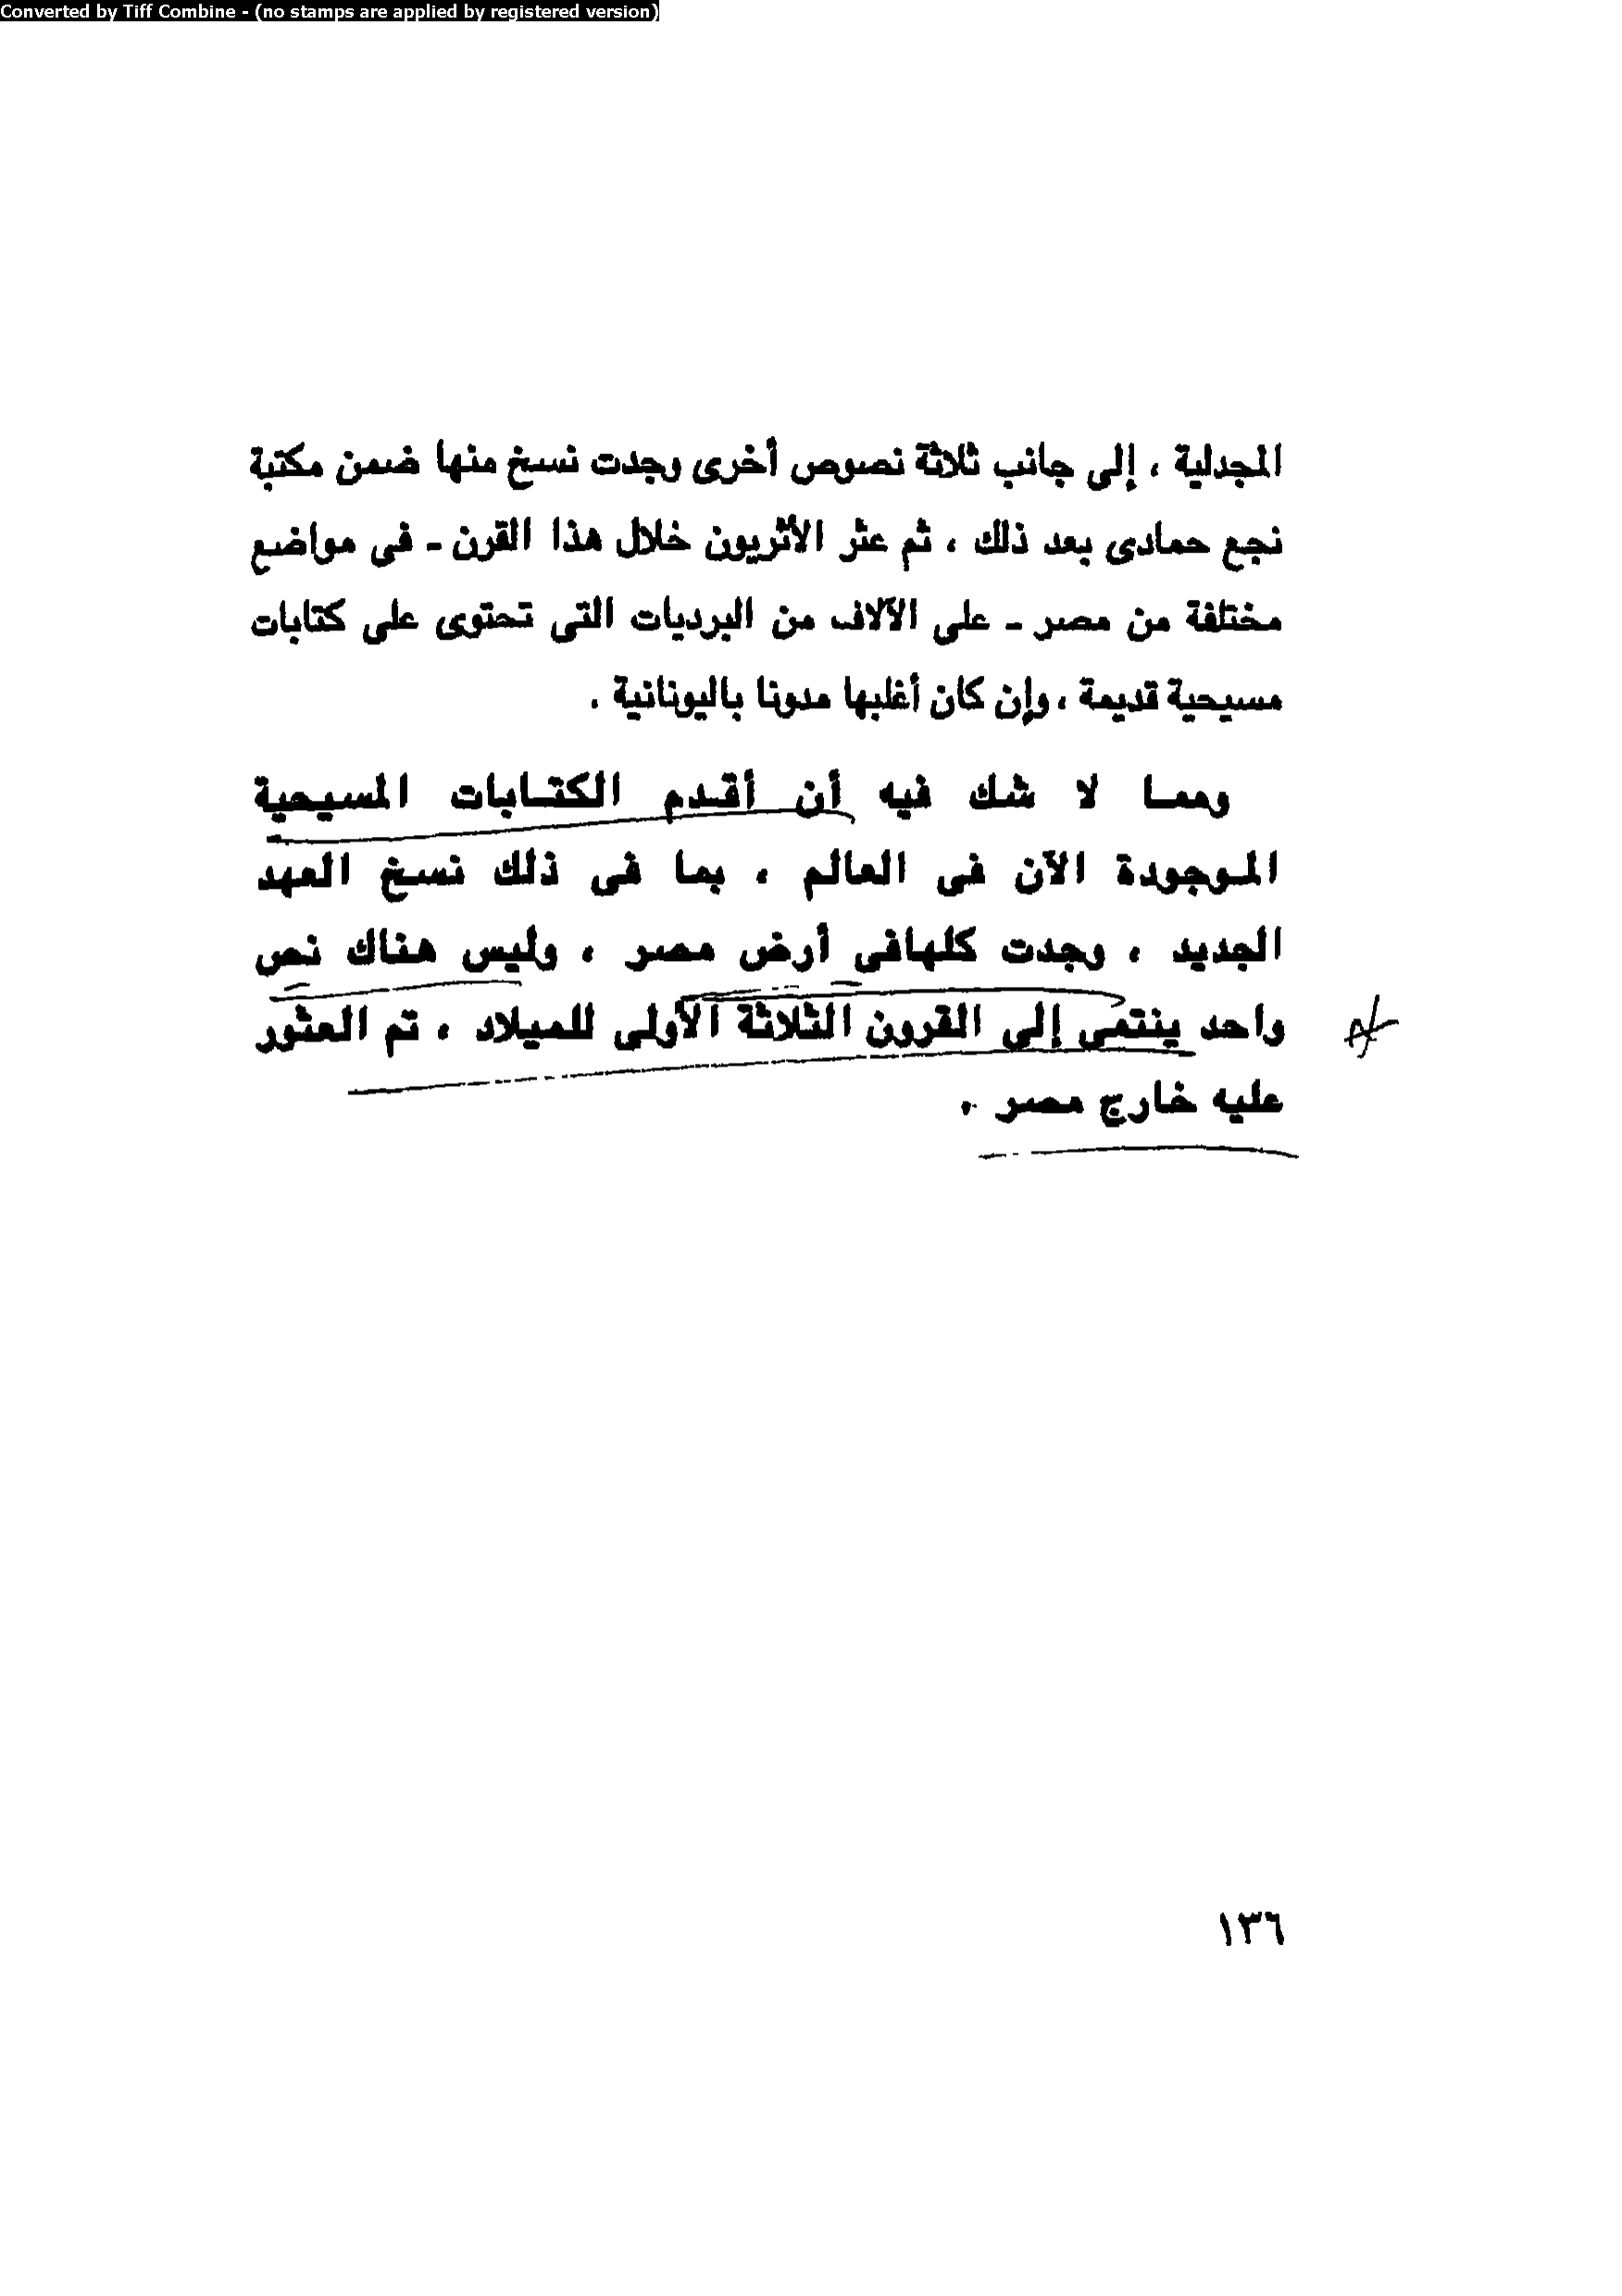 Converted by Tiff Combine - (no stamps are applied by registered version)
المجدلية ، إلى جانب ثلاثة نصوص أخرى وجدت نسخ منها ضمن مكتبة
نجع حمادى بعد ذلك ، ثم عثر الأثريون خلال هذا القرن ـ فى مواضع
مختلفة من مصر ـ على الآلاف من البرديات التى تحتوى على كتابات
مسيحية قديمة ، وإن كان أغلبها مدونا باليونانية .
ومما لا شك فيه أن أقدم الكتابات المسيحية
الموجودة الآن فى العالم ، بما فى ذلك نسخ العهد
الجديد ، وجدت كلهافى أرض مصر ، وليس هناك نص
واحد ينتمى إلى القرون الثلاثة الأولى للميلاد ، تم العثور
عليه خارج مصر .
١٣٦